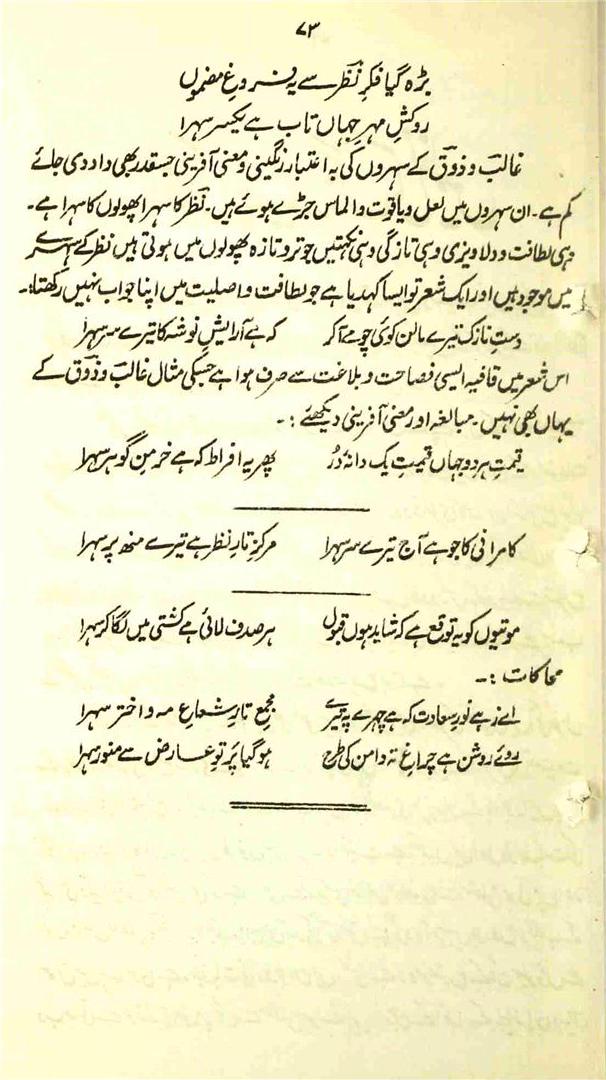 ۷۳
بڑھ گیا فکرِ نظرؔ سے یہ فروغِ مضموں
روکشِ مہرِ جہاں تاب ہے یکسر سہرا
غالبؔ و ذوقؔ کے سہروں کی بہ اعتبار رنگینی و معنی آفرینی جسقدر بھی داد دی جائے
کم ہے۔ ان سہروں میں لعل و یاقوت و الماس جڑے ہوئے ہیں۔ نظرؔ کا سہرا پھولوں کا سہرا ہے۔
وہی لطافت و دلاویزی وہی تازگی وہی نکہتیں جو تر و تازہ پھولوں میں ہوتی ہیں نظر کے سہرے
میں موجود ہیں اور ایک شعر تو ایسا کہدیا ہے جو لطافت و اصلیت میں اپنا جواب نہیں رکھتا:۔
دستِ نازک تیرے مالن کوئی چومے آ کر کہ ہے آرایشِ نوشہ کا تیرے سر سہرا
اس شعر میں قافیہ ایسی فصاحت و بلاغت سے صرف ہوا ہے جسکی مثال غالبؔ و ذوقؔ کے
یہاں بھی نہیں۔ مبالغہ اور معنی آفرینی دیکھئے:۔
قیمتِ ہر دو جہاں قیمتِ یک دانۂ دُر پھر یہ افراط کہ ہے خرمنِ گوہر سہرا
کامرانی کا جو ہے آج تیرے سر سہرا مرکزِ تارِ نظر ہے تیرے منھ پر سہرا
موتیوں کو یہ توقع ہے کہ شاید ہوں قبول ہر صدف لائی ہے کشتی میں لگا کر سہرا
محاکات:۔
اے زہے نورِ سعادت کہ ہے چہرے پہ تیرے مجمعِ تارِ شعاعِ مہ و اختر سہرا
روئے روشن ہے چراغِ تہِ دامن کی طرح ہو گیا پرتوِ عارض سے منور سہرا